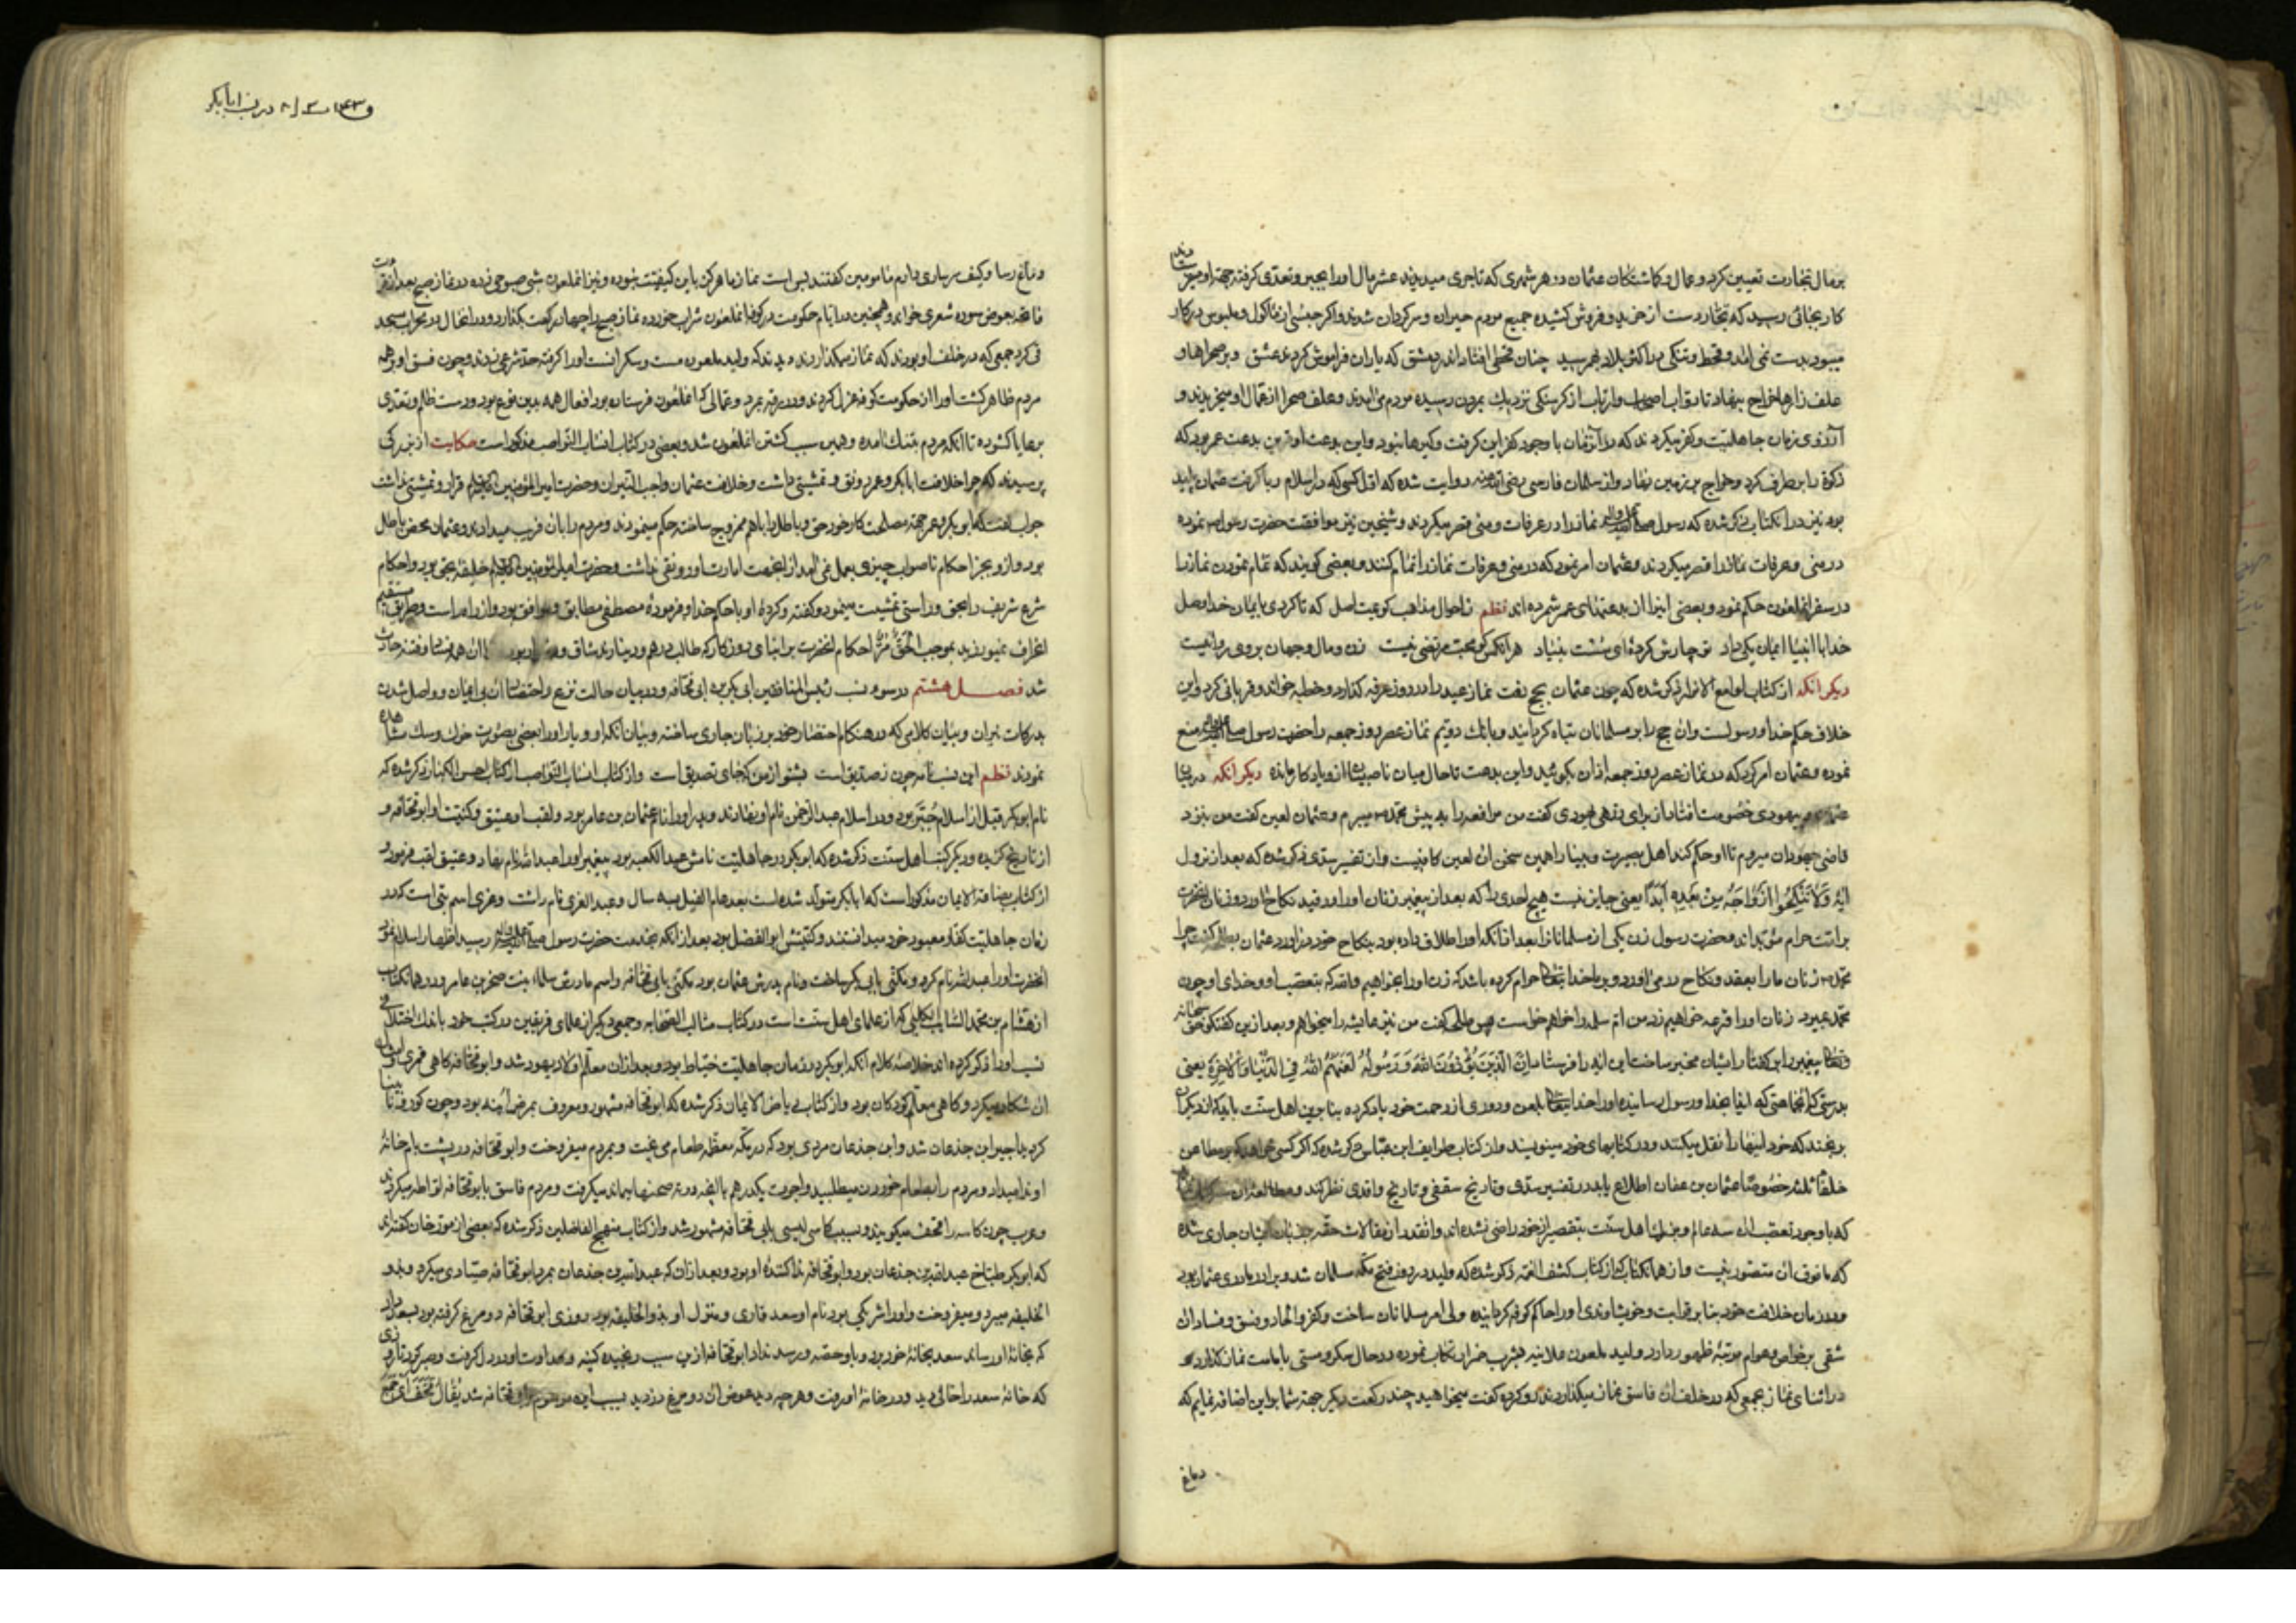 بر مال تجارت تعیین کرد و عمال و کماشتکان عثمان در هر شهری که تاجری میدیدند عشر مال او را بجبر و تعدی کرفته جهة او میفرستادند
کار بجائی رسید که تجار دست از خرید و فروش کشیده جمیع مردم حیران و سرکردان شدند و اکر جنسی از مأکول و ملبوس در کار
میبود بدست نمی آمد و قحط و تنکی در اکثر بلاد بهم رسید چنان قحطی افتاد اندر دمشق که یاران فراموش کردند عشق و بر صحراها و
علف زارها خراج بنهاد تا دواب اصحاب وارباب از کرسنکی نزدیک بمردن رسیده مردم می آمدند و علف صحرا از عمال او میخریدند و
آرزوی زمان جاهلیت و کفر میکردند که در آن زمان با وجود کفر این کرفت و کیرها نبود و این بدعت او ترین بدعت عمر بود که
زکوة را برطرف کرد و خراج بر زمین نهاد و از سلمان فارسی رضی الله عنه روایت شده که اول کسی که در اسلام ربا کرفت عثمان پلید
بود نیز در آن کتاب ذکر شده که رسول صلی الله علیه وآله نماز را در عرفات و منی قصر میکردند و شیخین نیز موافقت حضرت رسول نموده
در منی و عرفات نماز را قصر میکردند و عثمان امر نمود که در منی و عرفات نماز را تمام کنند و بعضی کویند که تمام نمودن نماز را
در سفر آنملعون حکم نمود و بعضی اینرا از بدعتهای عمر شمرده اند نظم ز احوال مذاهب کویمت اصل که تا کردی بایمان خدا وصل
خدا با انبیا ایمان یکی داد تو چارش کرده‌ای سست بنیاد هر آنکس کو محب مرتضی نیست زن و مال و جهان بر وی روا نیست
دیکر آنکه از کتاب لوامع الانوار ذکر شده که چون عثمان بحج رفت نماز عید را در روز عرفه کذارد و خطبه خواند و قربانی کرد و این
خلاف حکم خدا و رسولست و آن حج را بر مسلمانان تباه کردانید و بانک دویم نماز عصر روز جمعه را حضرت رسول صلی الله علیه وآله منع
نموده و عثمان امر کرد که در نماز عصر روز جمعه اذان بکوئید و این بدعت تا حال میان ناصبیان از و یادکار مانده دیکر آنکه در میان
عثمان و یهودی خصومت افتاد از برای زرهی یهودی کفت من مرافعه را به پیش محمد میبرم و عثمان لعین کفت من بنزد
قاضی جهودان میروم تا او حکم کند اهل بصیرت و بینا را همین سخن آن لعین کافیست و از تفسیر سدی ذکر شده که بعد از نزول
آیه وَلَا تَنْكِحُوا أَزْوَاجَهُ مِنْ بَعْدِهِ أَبَدًا یعنی جایز نیست هیچ احدی را که بعد از پیغمبر زنان او را در قید نکاح آورد و زنان آنحضرت
بر امت حرام مؤبد اند و حضرت رسول زن یکی از مسلمانان را بعد از آنکه او را طلاق داده بود بنکاح خود در آورد عثمان کفت چرا
محمد زنان ما را بعقد و نکاح در می آورد و بر ما خدایتعالی حرام کرده باشد که زن او را بخواهیم والله که بتعصب او و خدای او چون
محمد بمیرد زنان او را قرعه خواهیم زد من ام سلمه را خواهم خواست پس طلحه کفت من نیز عایشه را میخواهم و بعد از این کفتکو حق سبحانه
وتعالی پیغمبر را بر این کفتار ایشان مخبر ساخت این آیه را فرستاد إِنَّ الَّذِينَ يُؤْذُونَ اللَّهَ وَرَسُولَهُ لَعَنَهُمُ اللَّهُ فِي الدُّنْيَا وَالْآخِرَةِ یعنی
بدرستی که آنجماعتی که ایذا بخدا و رسول رسانیده او را خدایتعالی بلعن و دوری از رحمت خود یاد کرده بنابر این اهل سنت باید که از دیکران
نرنجند که خود اینها را نقل میکنند و در کتابهای خود مینویسند و از کتاب طرایف ابن عباس ذکر شده که اکر کسی خواهد که بر مطاعن
خلفا ثلثه خصوصا عثمان بن عفان اطلاع یابد در تفسیر سدی و تاریخ سقفی و تاریخ واقدی نظر کند و مطالعه آن
که با وجود تعصب آن سه عالم و بزرک اهل سنت بتقصیر از خود راضی نشده اند و آنقدر از مقالات حقه بر زبان ایشان جاری شده
که ما فوق آن متصور نیست و از همان کتاب که از کتاب کشف الغمه ذکر شده که ولید در روز فتح مکه مسلمان شد و برادر مادری عثمان بود
و در زمان خلافت خود بنا بر قرابت و خویشاوندی او را حاکم کوفه کردانیده ولی امر مسلمانان ساخت و کفر و الحاد و فسق و فساد آن
شقی بر خواص و عوام مرتبه ظهور دارد و ولید ملعون علانیه بشرب خمر ارتکاب نموده در حال سکر و مستی بامامت نماز کذارد و
در اثنای نماز بجمعی که در خلف آن فاسق نماز میکذاردند رو کرده کفت میخواهید چند رکعت دیکر جهة شما بر این اضافه نمایم که
دماغ
در نسب ابابکر
دماغ رسا و کیف سرشاری دارم مامومین کفتند بس است نماز ما هرکز باین کیفیت نبوده و نیز آنملعون شبی صبوحی زده در نماز صبح بعد از قرائت
فاتحه بعوض سوره شعری خواند و همچنین در ایام حکومت در کوفه آنملعون شراب خورده نماز صبح را چهار رکعت بکذارد و در آنحال در محراب مسجد
قی کرد جمعی که در خلف او بودند که نماز میکذاردند دیدند که ولید ملعون مست و سکرانست او را کرفته حد شرعی زدند و چون فسق او بر همه
مردم ظاهر کشت او را از حکومت کوفه عزل کردند و در رقه بمرد و عمالی که آنملعون فرستاده بود افعال همه بدین نوع بود و دست ظلم و تعدی
برعایا کشوده تا آنکه مردم بتنک آمده و همین سبب کشتن آنملعون شد و بعضی در کتاب انساب النواصب مذکور است حکایت از بزرکی
پرسیدند که چرا خلافت ابابکر و عمر رونق و تمشیتی داشت و خلافت عثمان واجب النیران و حضرت امیر المؤمنین علیه السلام قرار و تمشیتی نداشت
جواب کفت که ابوبکر و عمر جهة مصلحت کار خود حق و باطل را با هم ممزوج ساخته حکم مینمودند و مردم را بآن فریب میدادند و عثمان محض باطل
بود و از و بجز احکام ناصواب چیزی بعمل نمی آمد از اینجهت امارت او رونقی نداشت و حضرت امیر المؤمنین علیه السلام خلیفه بحق بود و احکام
شرع شریف را بحق و راستی تمشیت مینمود و کفته و کرده او با حکم خدا و فرموده مصطفی مطابق و موافق بود و از راه راست و طریق مستقیم
انحراف نمیورزید بموجب الحَقُّ مُرٌّ احکام آنحضرت بر ابنای روزکار که طالب درهم و دینارند شاق و دشوار بود از آن همه فساد و فتنه حادث
شد فصل هشتم در سوء نسب رئیس المنافقین ابی بکر بن ابی قحافه و در بیان حالت نزع و احتضار آن بی ایمان و واصل شدن
بدرکات نیران و بیان کلامی که در هنکام احتضار خود بر زبان جاری ساخته و بیان آنکه او و یار او را بعضی بصورت خوک و سک مشاهده
نمودند نظم این نسب نامه چون ز صدیق است بشنو از من که جای تصدیق است و از کتاب انساب النواصب از کتاب احسن الکبار ذکر شده که
نام ابوبکر قبل از اسلام حُبتَر بود و در اسلام عبد الرحمن نام او نهادند و پدر او را نام عثمان بن عامر بود و لقب او عتیق و کنیت او ابوقحافه و
از تاریخ کزیده و دیکر کتب اهل سنت ذکر شده که ابوبکر در جاهلیت نامش عبد الکعبه بود پیغمبر او را عبد الله نام نهاد و عتیق لقب فرمود و
از کتاب بضاعة الایمان مذکور است که ابابکر متولد شده است بعد عام الفیل بسه سال و عبد العزی نام داشت و عزی اسم بتی است که در
زمان جاهلیت کفار معبود خود میدانستند و کنیتش ابو الفضل بود بعد از آنکه بخدمت حضرت رسول صلی الله علیه وآله رسید اظهار اسلام نمود
آنحضرت او را عبد الله نام کرد و مکنی بابی بکر ساخت و نام پدرش عثمان بود مکنی بابی قحافه و اسم مادرش سلما بنت صخر بن عامر و در همان کتاب
از هشام بن محمد السائب الکلبی که از علمای اهل سنت است در کتاب مثالب الصحابه و جمعی دیکر از علمای فریقین در کتب خود باندک اختلافی
نسب او را ذکر کرده اند خلاصه کلام آنکه ابوبکر در زمان جاهلیت خیاط بود و بعد از آن معلم اولاد یهود شد و ابوقحافه کاهی قمری و امثال
آن شکار میکرد و کاهی معلم کودکان بود و از کتاب ریاض الایمان ذکر شده که ابوقحافه مشهور و معروف بمرض اُبنه بود و چون کور و نابینا
کردید اجیر ابن جذعان شد و ابن جذعان مردی بود که در مکه معظمه طعام می پخت و بمردم میفروخت و ابوقحافه در پشت بام خانه
او ندا میداد و مردم را بطعام خوردن میطلبید و اجرت یکدرهم با آنچه در ته صحنها بماند میکرفت و مردم فاسق بابوقحافه لواطه میکردند
و عرب چون کاسه را قحف میکویند و بسبب کاسه لیسی بابی قحافه مشهور شد و از کتاب منهج الفاضلین ذکر شده که بعضی از مورخان کفته اند
که ابوبکر طباخ عبد الله بن جذعان بود و ابوقحافه ندا کننده او بود و بعد از آن که عبد الله بن جذعان بمرد ابوقحافه صیادی میکرد و بذو
الحلیفه میبرد و میفروخت و او را شریکی بود نام او سعد قاری و منزل او بذو الحلیفه بود روزی ابوقحافه دو مرغ کرفته بود بسعد داد
که بخانه او رساند سعد بخانه خود برد و باو حصه و رسد نداد ابوقحافه از این سبب رنجیده کینه و عداوت او در دل کرفت و صبر کرد تا روزی
که خانه سعد را خالی دید و در خانه او رفت و هر چه دید بعوض آن دو مرغ دزدید بسبب این موسوم بابوقحافه شد یُقَالُ تَقَحَّفَ اَی جَمَعَ